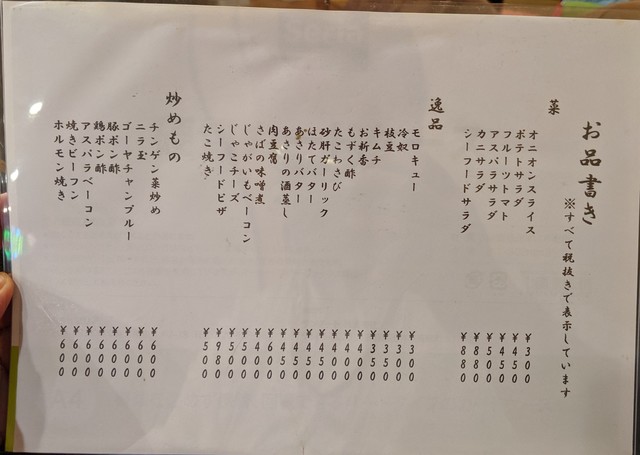 お品書き
※すべて税抜きで表示しています
菜
オニオンスライス ¥300
ポテトサラダ ¥450
フルーツトマト ¥450
アスパラサラダ ¥500
カニサラダ ¥880
シーフードサラダ ¥880
逸品
モロキュー ¥300
冷奴 ¥300
枝豆 ¥300
キムチ ¥350
お新香 ¥400
もずく酢 ¥400
たこわさび ¥400
砂肝ガーリック ¥450
ほたてバター ¥450
あさりバター ¥450
あさりの酒蒸し ¥450
肉豆腐 ¥600
さばの味噌煮 ¥400
じゃがいもベーコン ¥500
じゃこチーズ ¥550
シーフードピザ ¥980
たこ焼き ¥500
炒めもの
チンゲン菜炒め ¥600
ニラ玉 ¥600
ゴーヤチャンプルー ¥600
豚ポン酢 ¥600
鶏ポン酢 ¥600
アスパラベーコン ¥600
焼きビーフン ¥600
ホルモン焼き ¥600